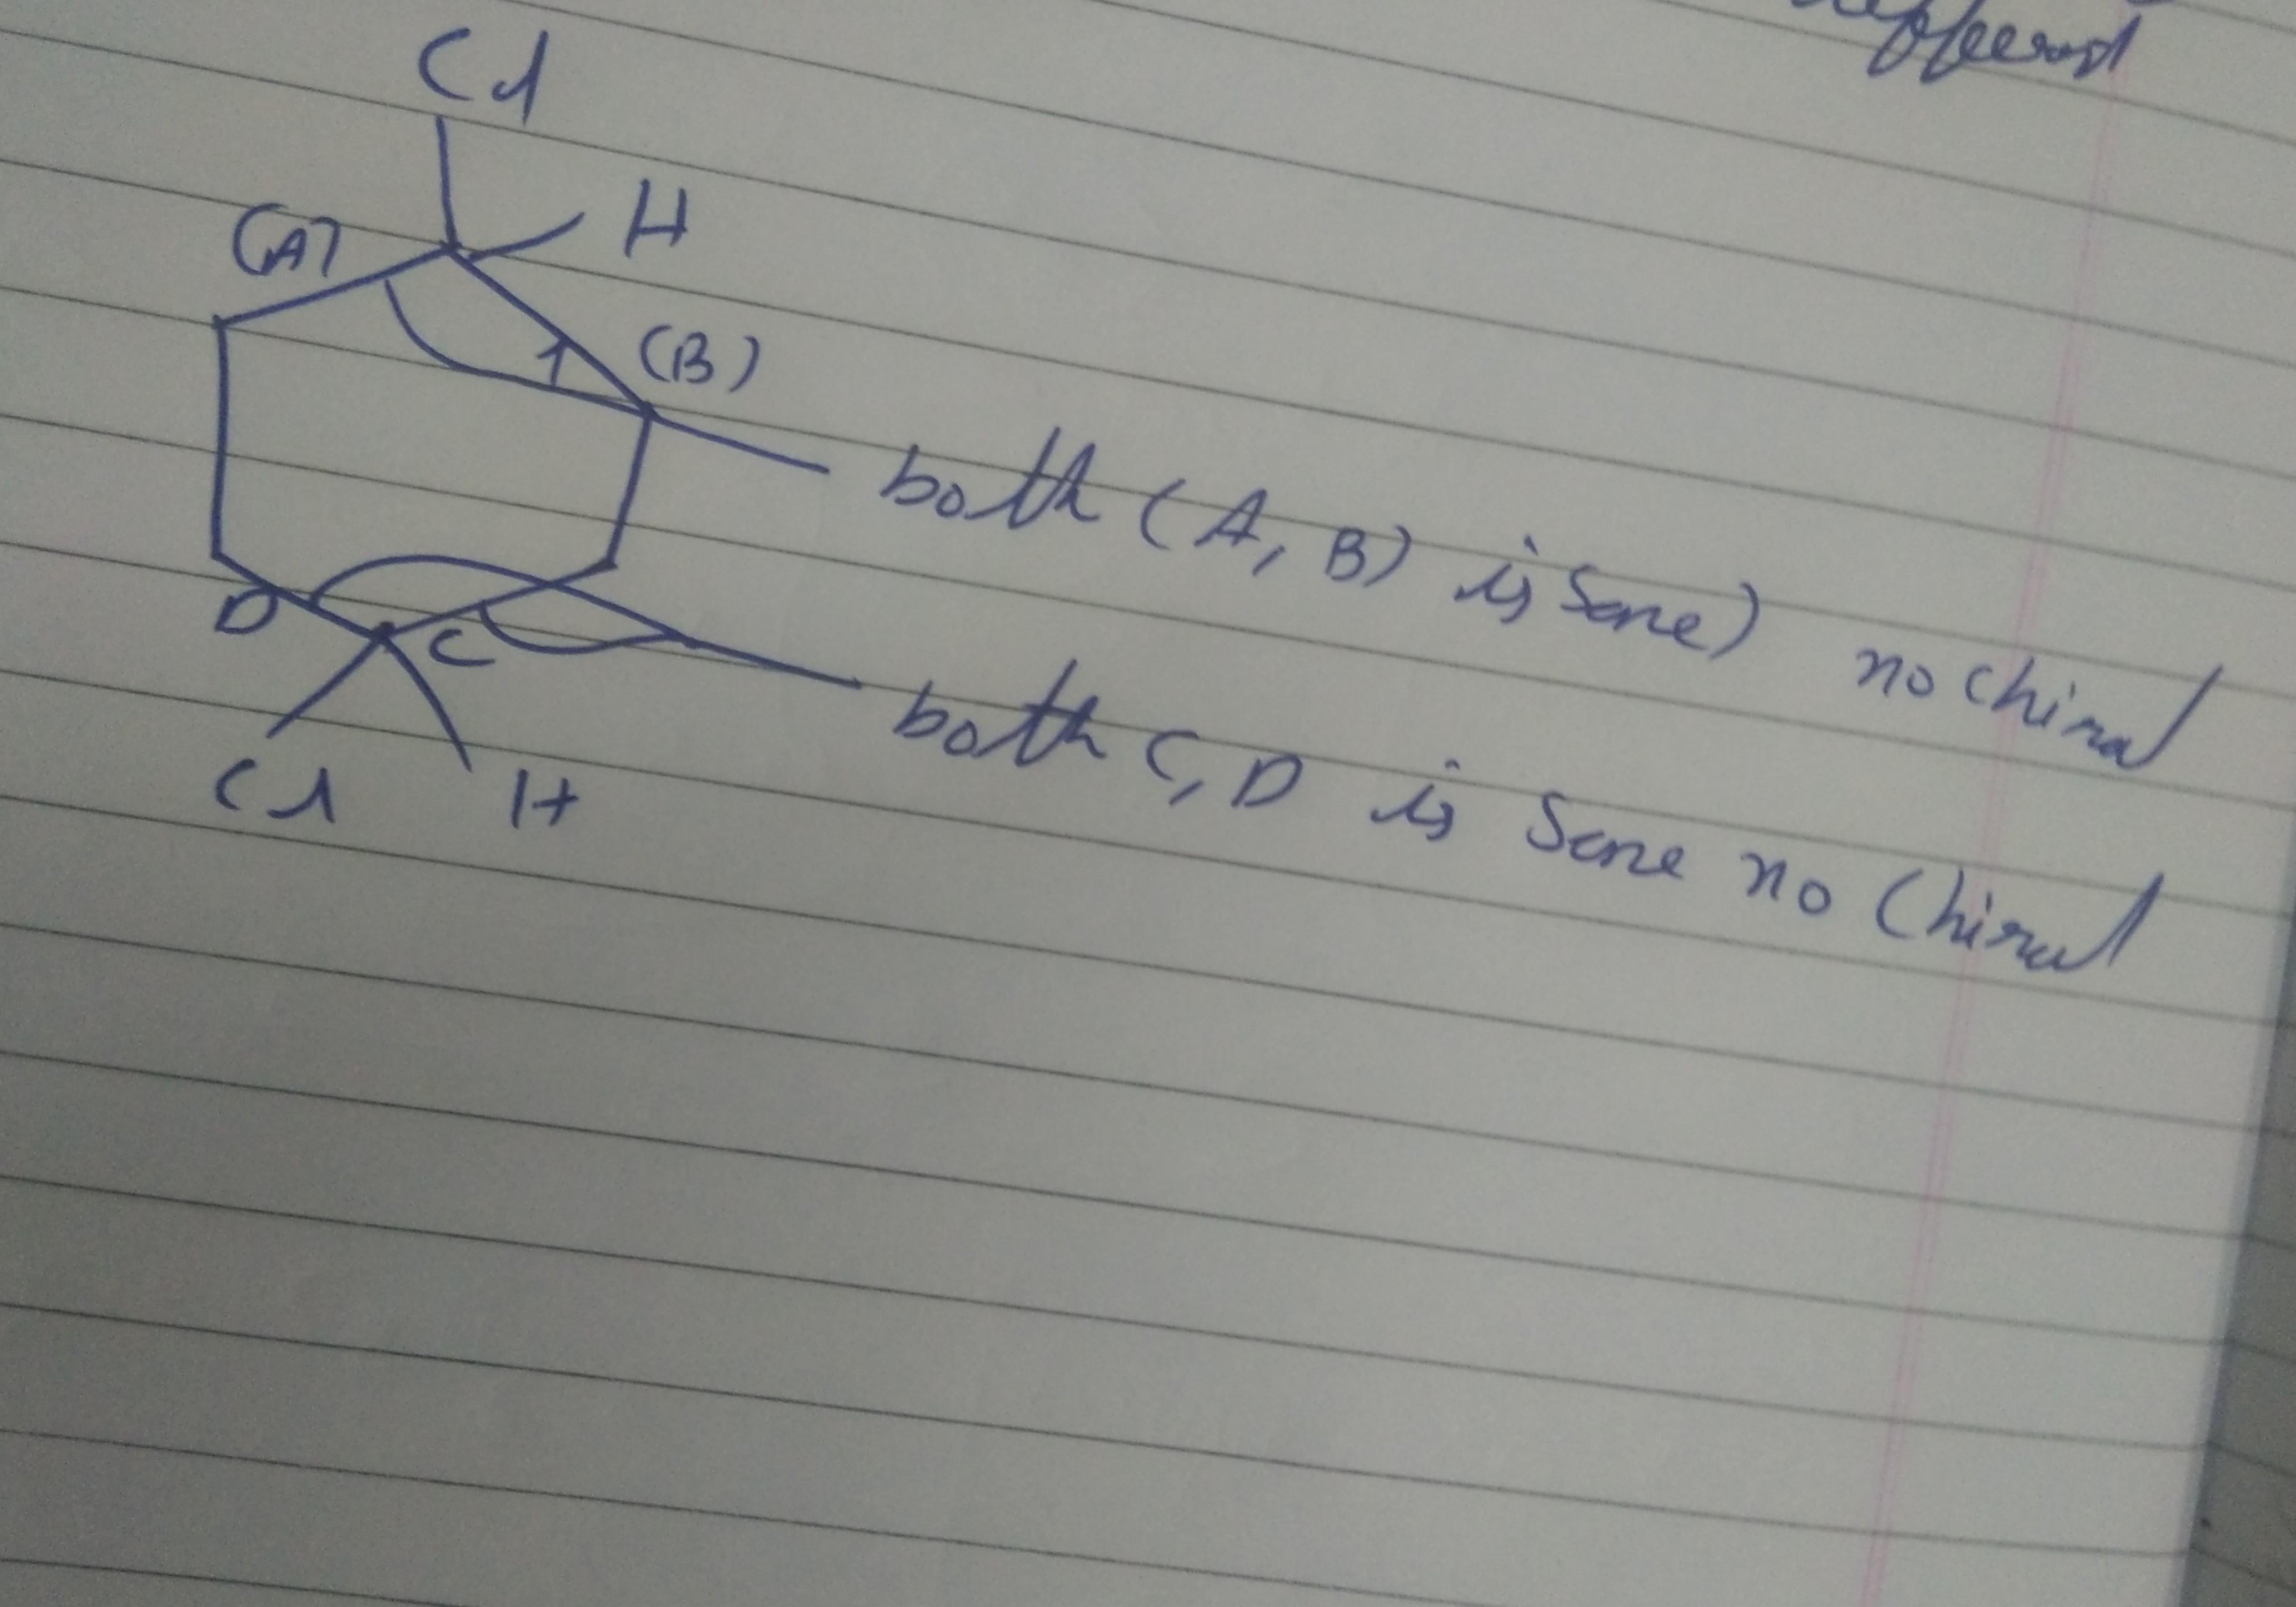 Cl
(A)
H
(B)
both (A, B) is Same) no Chiral
D
C
both C, D is Same no Chiral
Cl
H